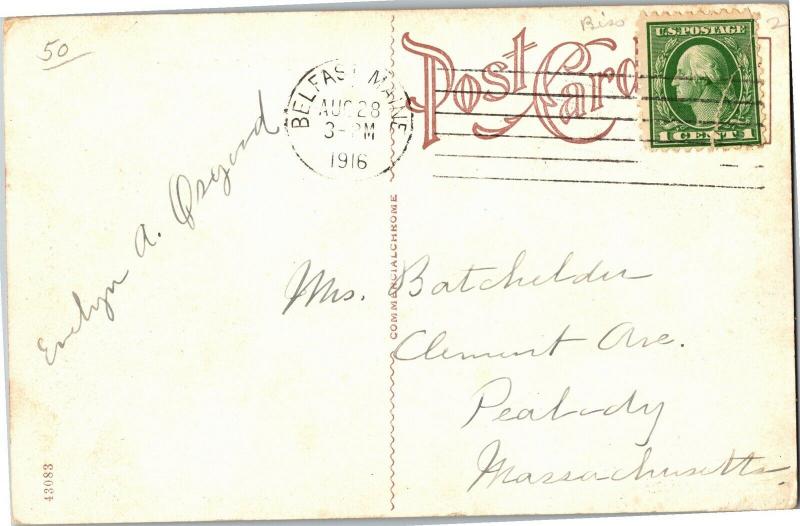 50
Biso
2
Post Card
U.S. POSTAGE
1 CENTS 1
BELFAST MAINE
AUG 28
3-PM
1916
Evelyn A. Osgood
COMMERCIALCHROME
Mrs. Batchelder
Clement Ave.
Peabody
Massachusetts
43083